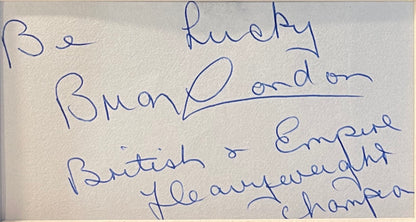 Be Lucky
Brian London
British & Empire
Heavyweight
Champion